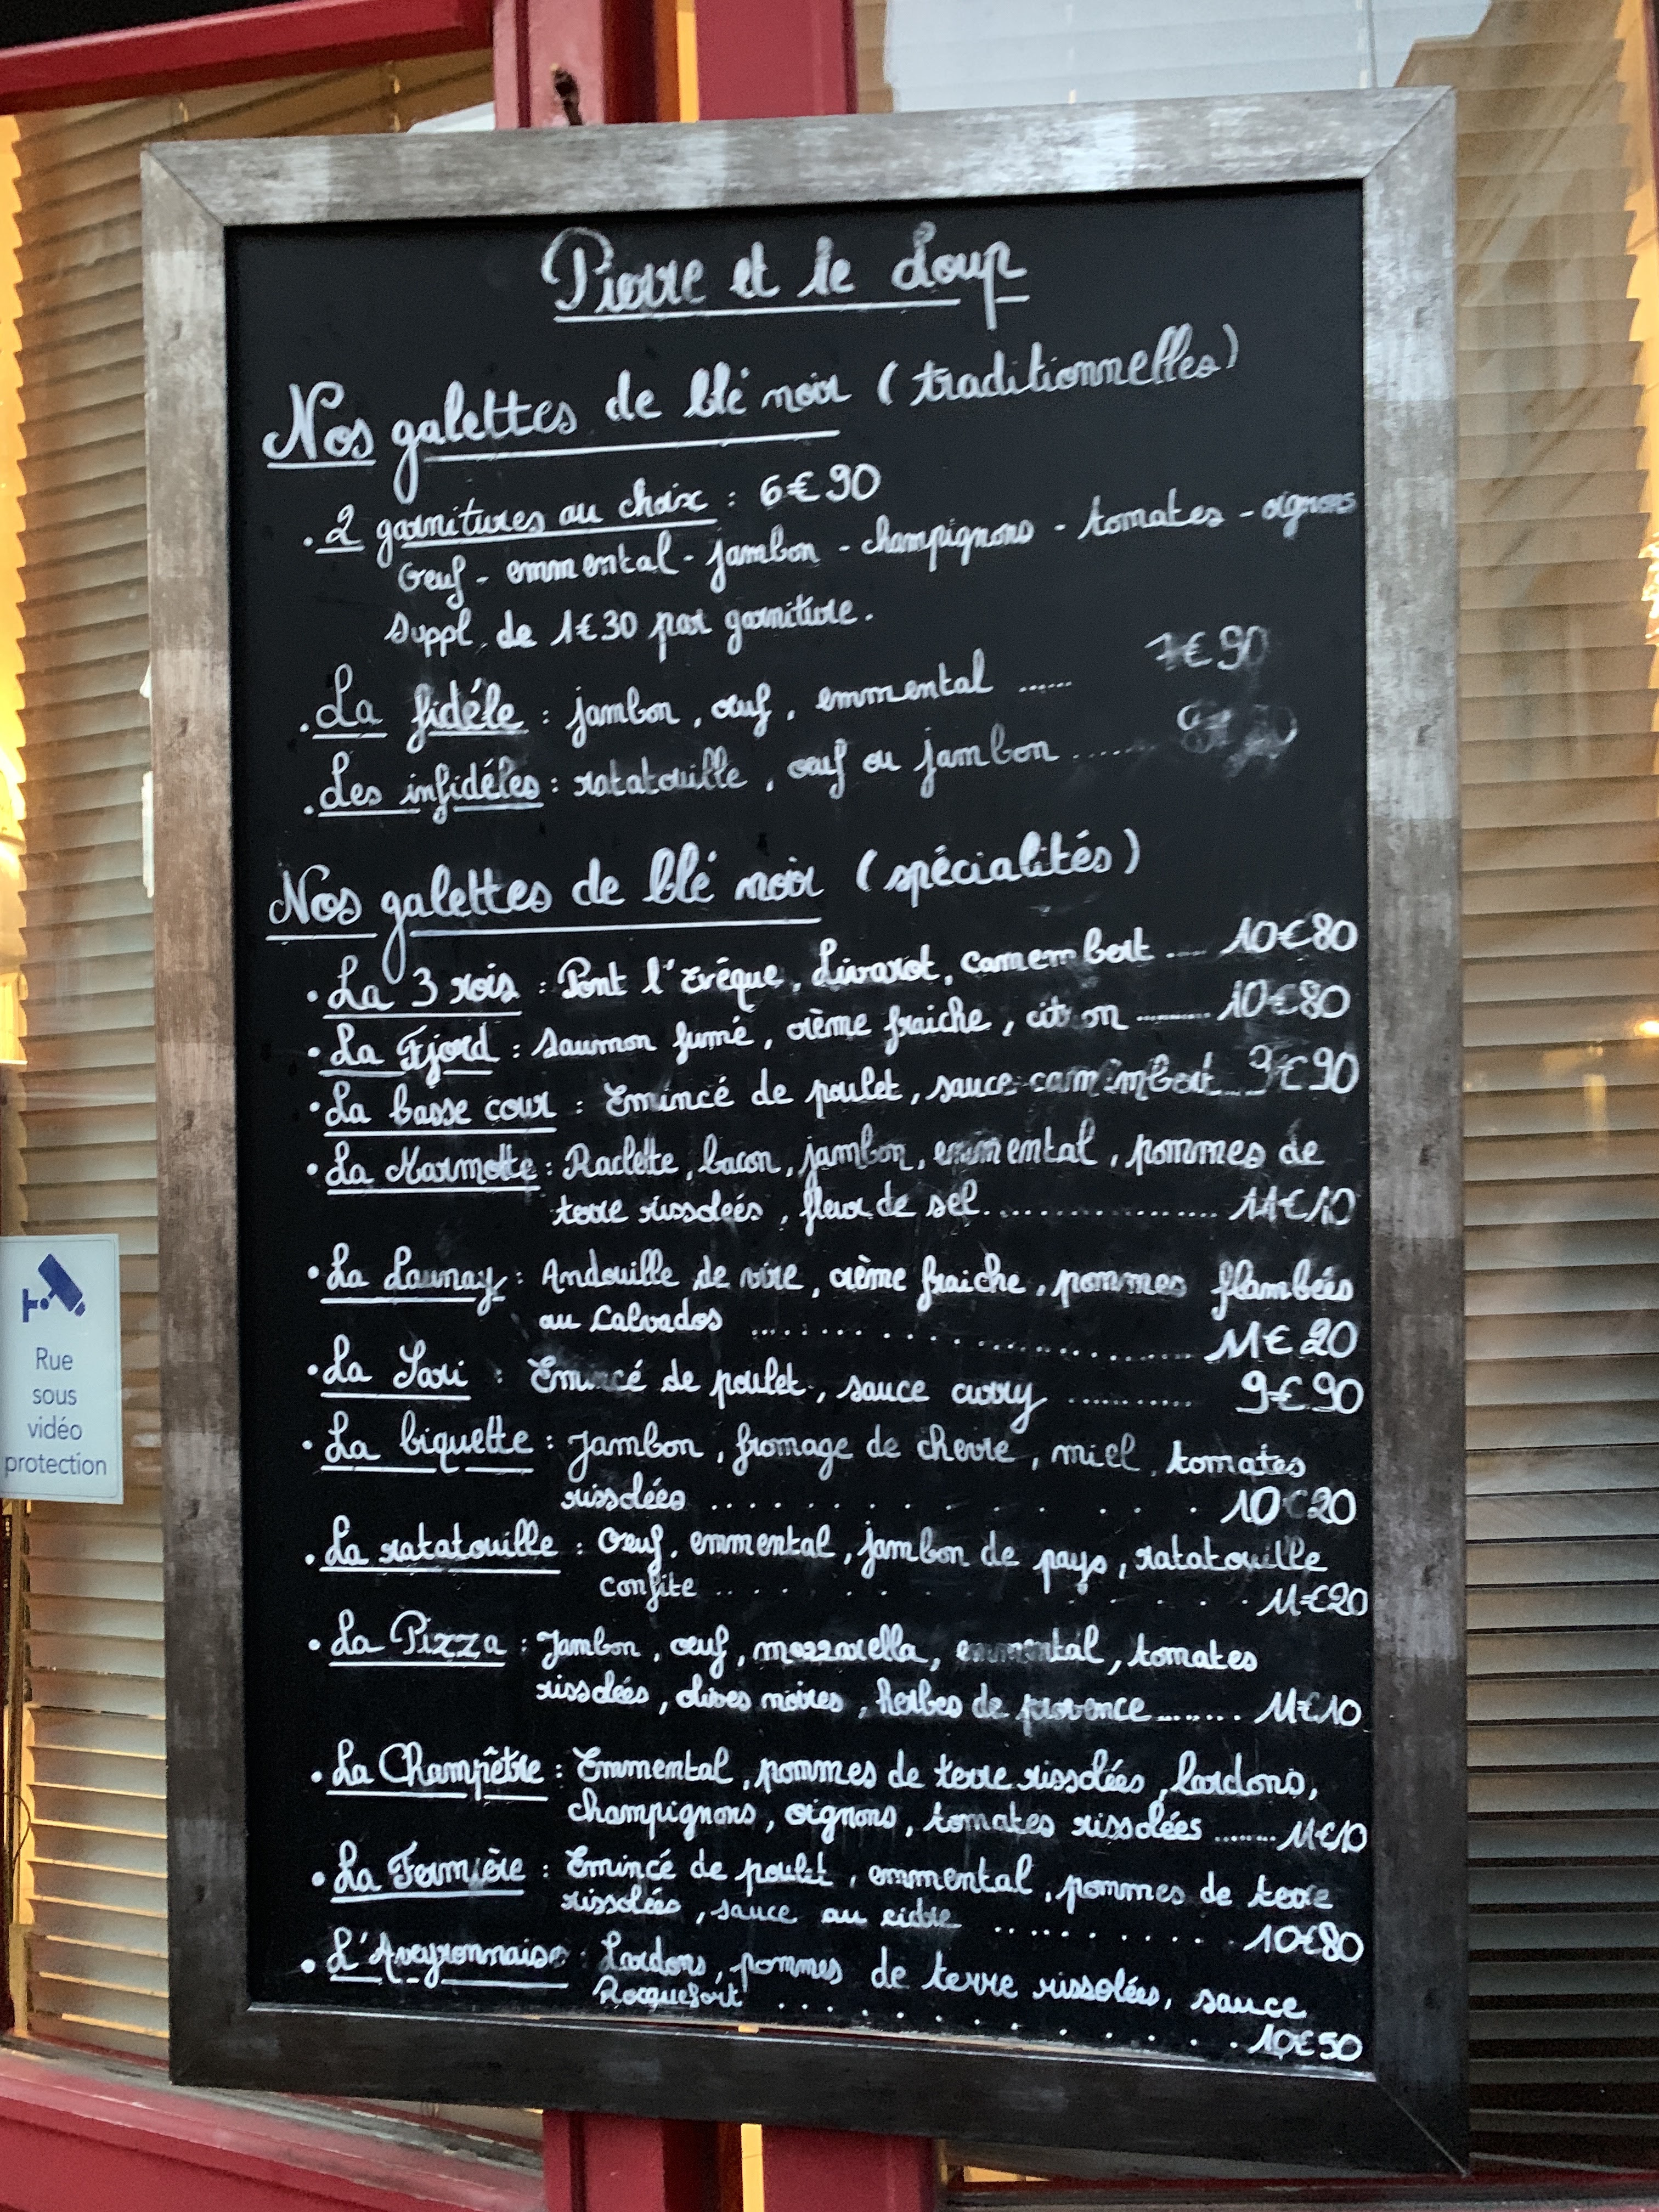 Pierre et le Loup
Nos galettes de blé noir (traditionnelles)
. 2 garnitures au choix : 6€90
Oeuf - emmental - jambon - champignons - tomates - oignons
Suppl. de 1€30 par garniture.
. La fidéle : jambon, œuf, emmental ...... 7€90
. Les infidéles : ratatouille, œuf ou jambon ......
Nos galettes de blé noir (spécialités)
• La 3 rois : Pont l'Evêque, Livarot, Camembert .... 10€80
• La Fjord : Saumon fumé, crème fraiche, citron .......... 10€80
• La basse cour : Emincé de poulet, sauce camembert ... 9€90
• La Marmotte : Raclette, bacon, jambon, emmental, pommes de
terre rissolées, fleur de sel .................. 11€10
• La Launay : Andouille de vire, crème fraiche, pommes flambées
au Calvados .................. 11€20
• La Sari : Emincé de poulet, sauce curry .......... 9€90
• La biquette : Jambon, fromage de chevre, miel, tomates
rissolées .................. 10€20
• La ratatouille : Oeuf, emmental, jambon de pays, ratatouille
confite .................. 11€20
• La Pizza : Jambon, œuf, mozzarella, emmental, tomates
rissolées, olives noires, herbes de provence ........ 11€10
• La Champêtre : Emmental, pommes de terre rissolées, lardons,
champignons, oignons, tomates rissolées ........ 11€10
• La Fermière : Emincé de poulet, emmental, pommes de terre
rissolées, sauce au cidre .......... 10€80
• L'Aveyronnaise : Lardons, pommes de terre rissolées, sauce
Rocquefort .................. 10€50
Rue
sous
vidéo
protection